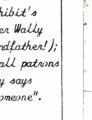 hibit's
er Wally
ndfather!);
all patrons
y says
omeone".